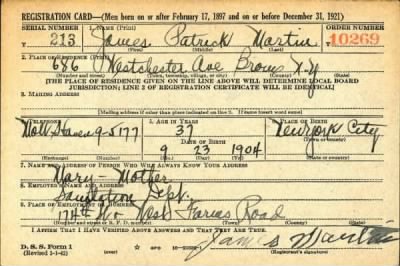 REGISTRATION CARD—(Men born on or after February 17, 1897 and on or before December 31, 1921)
SERIAL NUMBER 1. NAME (Print) ORDER NUMBER
213 James Patrick Martin 10269
(First) (Middle) (Last)
2. PLACE OF RESIDENCE (Print)
686 Westchester Ave Bronx N.Y
(Number and street) (Town, township, village, or city) (County) (State)
[THE PLACE OF RESIDENCE GIVEN ON THE LINE ABOVE WILL DETERMINE LOCAL BOARD
JURISDICTION; LINE 2 OF REGISTRATION CERTIFICATE WILL BE IDENTICAL]
3. MAILING ADDRESS
[Mailing address if other than place indicated on line 2. If same insert word same]
4. TELEPHONE 5. AGE IN YEARS 6. PLACE OF BIRTH
Mott Haven 9-5177 37 New York City
DATE OF BIRTH
9 23 1904
(Mo.) (Day) (Yr.)
7. NAME AND ADDRESS OF PERSON WHO WILL ALWAYS KNOW YOUR ADDRESS
Mary - Mother
8. EMPLOYER'S NAME AND ADDRESS
Sanitation Dept.
9. PLACE OF EMPLOYMENT OR BUSINESS
174th West Farms Road
(Number and street or R. F. D. number) (Town) (County) (State)
I AFFIRM THAT I HAVE VERIFIED ABOVE ANSWERS AND THAT THEY ARE TRUE.
D. S. S. Form 1
(Revised 1-1-42) James Martin
(Registrant's signature)